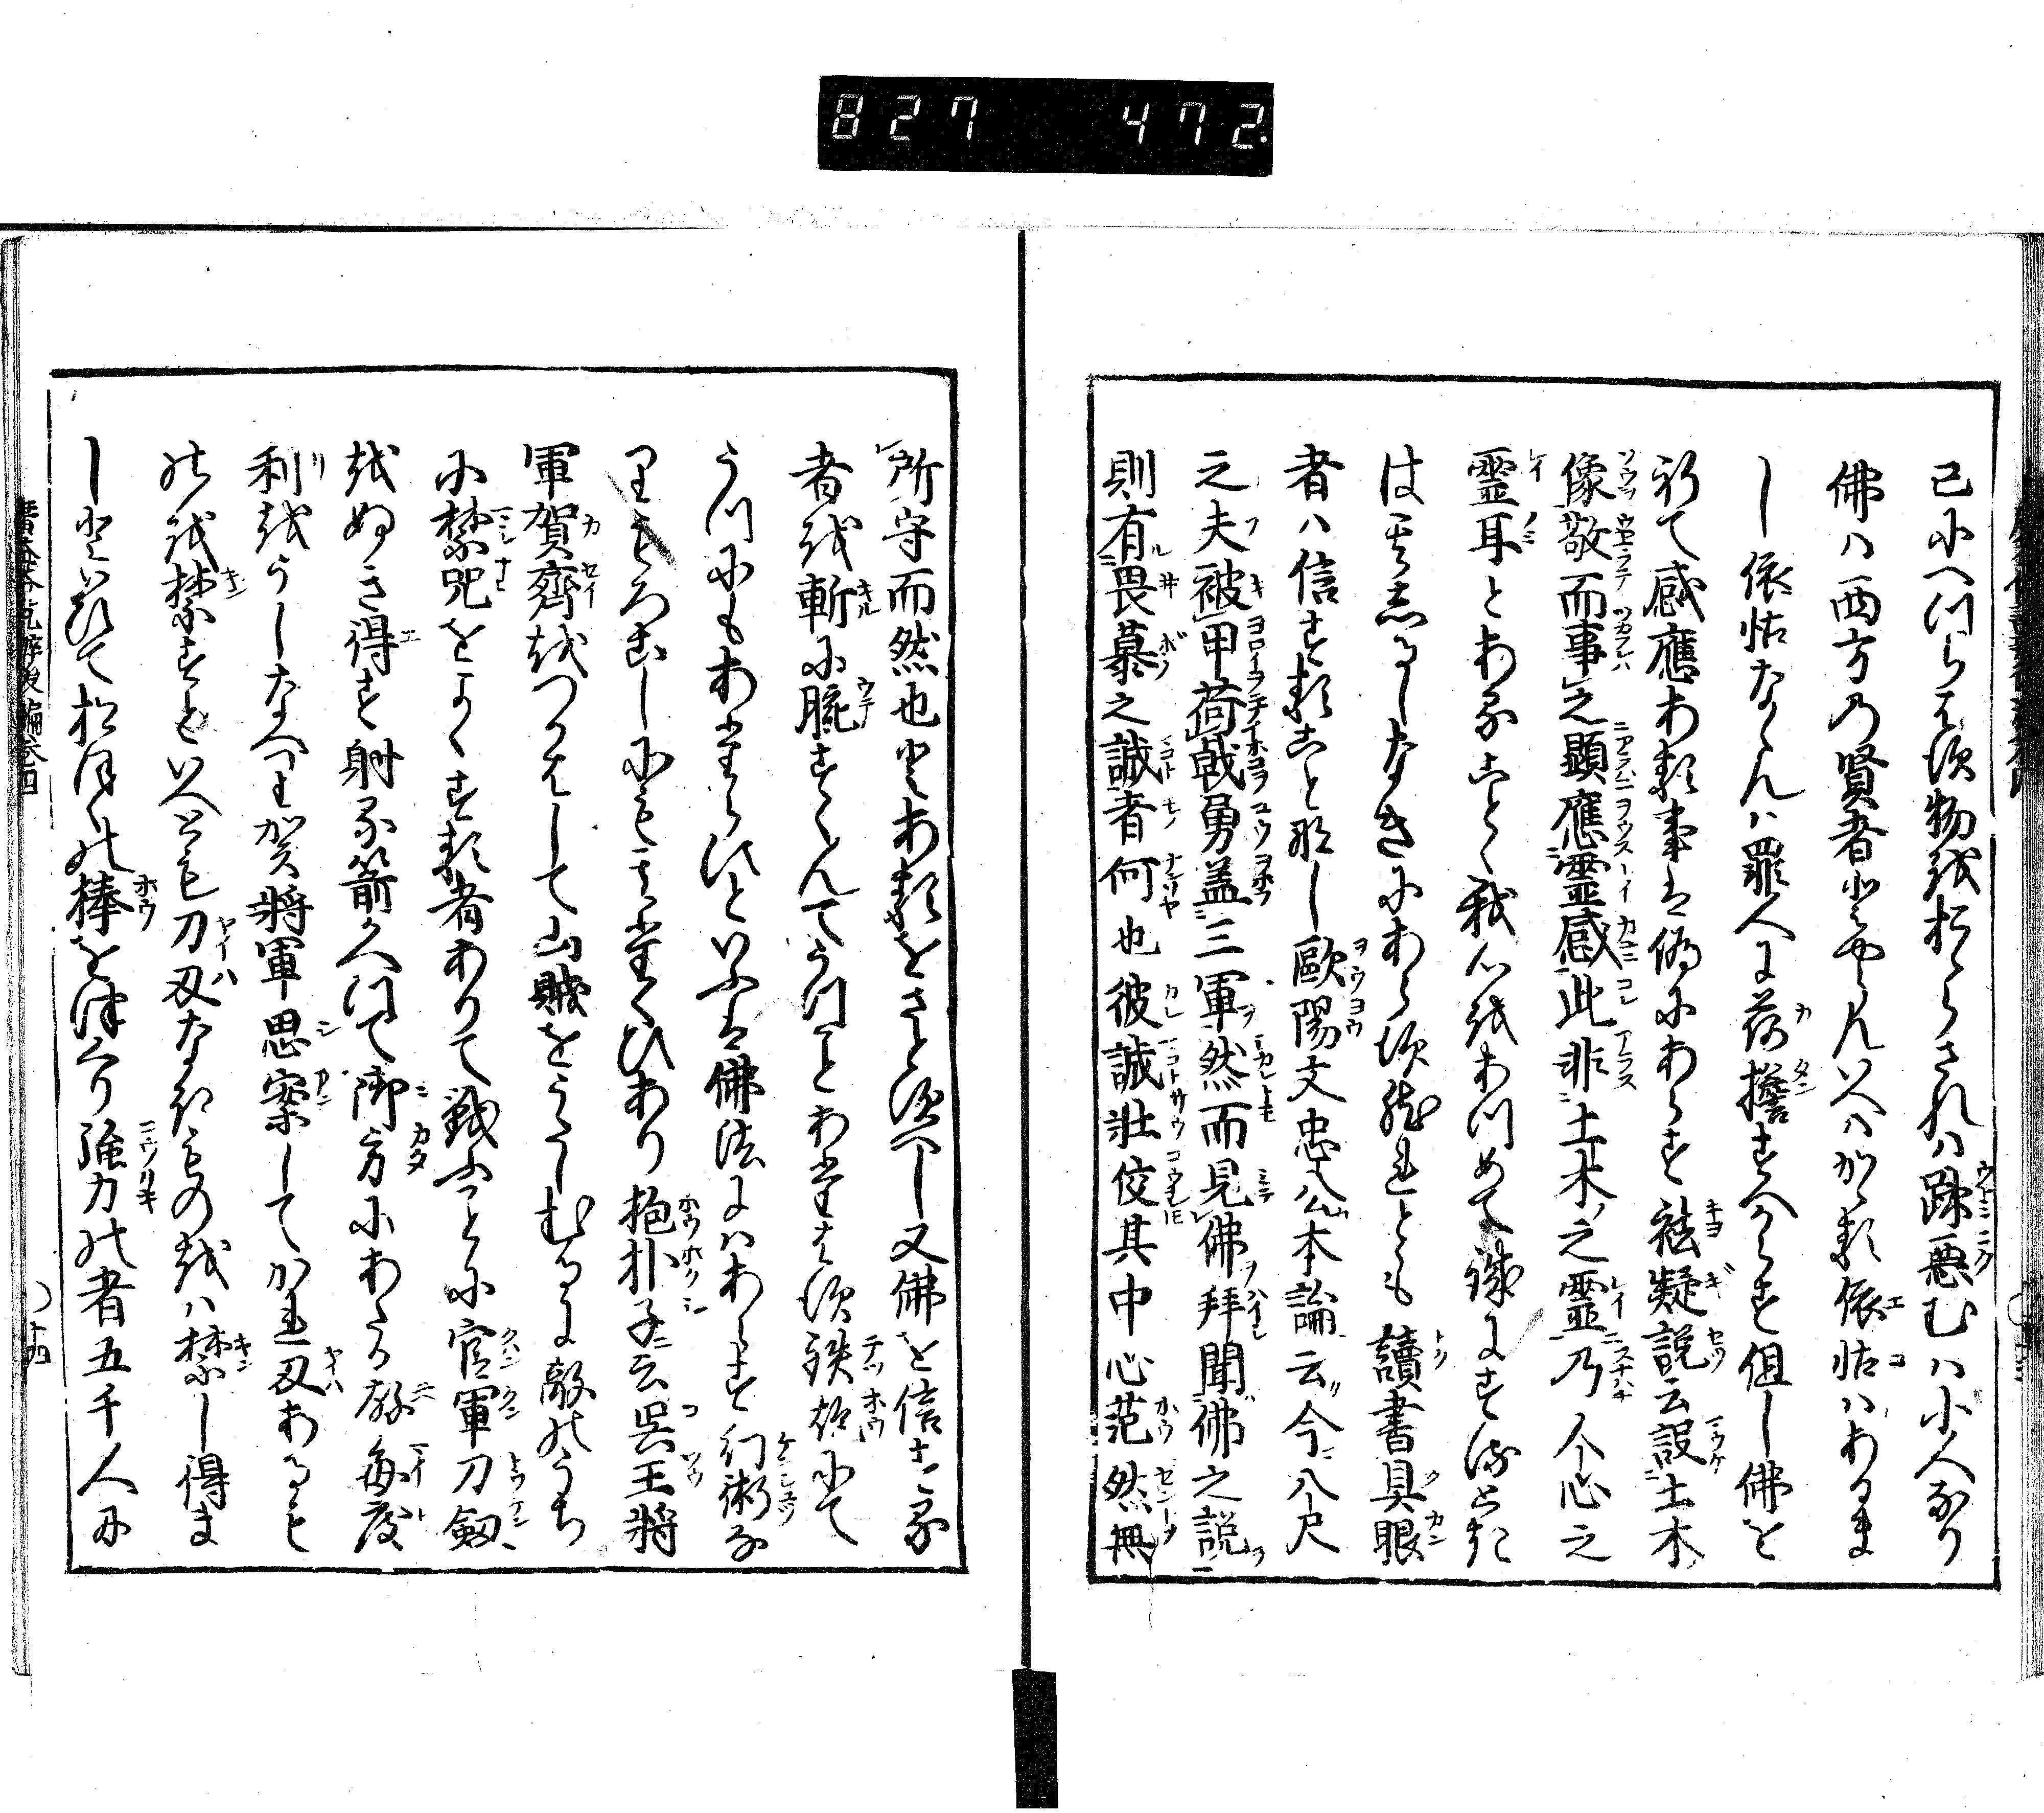 827 472.
己にへつらはす物をおくらされは踈悪むハ小人なり
佛ハ西方の賢者とやらん云ハかゝる依怙ハあるま
し依怙ならんハ罪人に荷擔すへからす但し佛を
祈て感應ある事は偽にあらす袪疑説云設土木
像敬而事之顕應霊感此非土木之霊乃人心之
霊耳とあることく我心をあつめて誠にするとき
はそのしるしなきにあらす然れとも讀書具眼
者ハ信することなし歐陽文忠公本論云今八尺
之夫被甲荷戟勇盖三軍然而見佛拜聞佛之説
則有畏慕之誠者何也彼誠壯佼其中心茫然無
所守而然也とあるをさとすへし又佛を信する
者を斬に腕すくんてうつことあたはす鉄炮にて
うつにもあたらすといふは佛法にハあらす幻術な
りもろこしにもそのたくひあり抱朴子云呉王將
軍賀齊をつかはして山賊をうたしむるに敵のうち
に禁呪をよくする者ありて戦ふことに官軍刀劔
をぬき得す射る箭かへつて御方にあたる故毎度
利をうしなへり賀將軍思案してかれ刃あるも
のを禁すといへとも刀刃なきものをハ禁し得ま
しといひておほくの棒をつくり強力の者五千人に